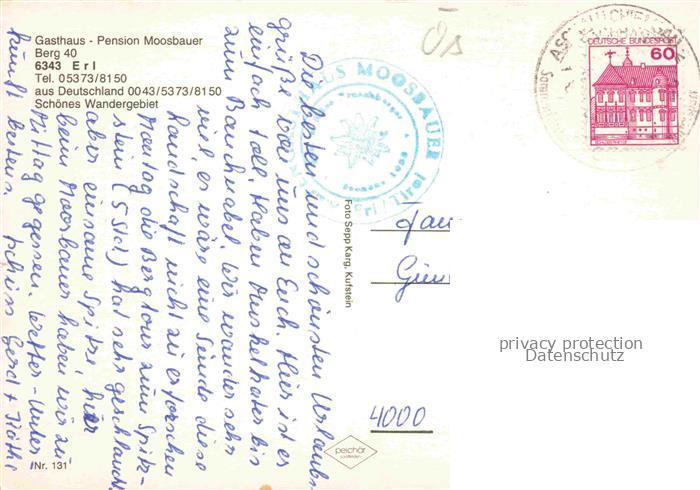 Gasthaus - Pension Moosbauer
Berg 40
6343 Erl
Tel. 05373/8150
aus Deutschland 0043/5373/8150
Schönes Wandergebiet
Die besten und schönsten Urlaubs-
grüße von uns an Euch. Hier ist es
einfach toll. Haben Muskelkater bis
zum Bauchnabel. Wir wandern sehr
viel, es wäre eine Sünde diese
Landschaft nicht zu erforschen
Montag die Bergtour zum Spitz-
stein (5 Std) hat sehr geschlaucht
aber einsame Spitze hier
beim Moosbauer haben wir zu
Mittag gegessen. Wetter - Unter
kunft bestens. Tschüss Gerd + Käthe
Nr. 131
GASTHAUS MOOSBAUER
Erl / Tirol
Foto Sepp Karg, Kufstein
DEUTSCHE BUNDESPOST
60
4000
peichär
privacy protection
Datenschutz